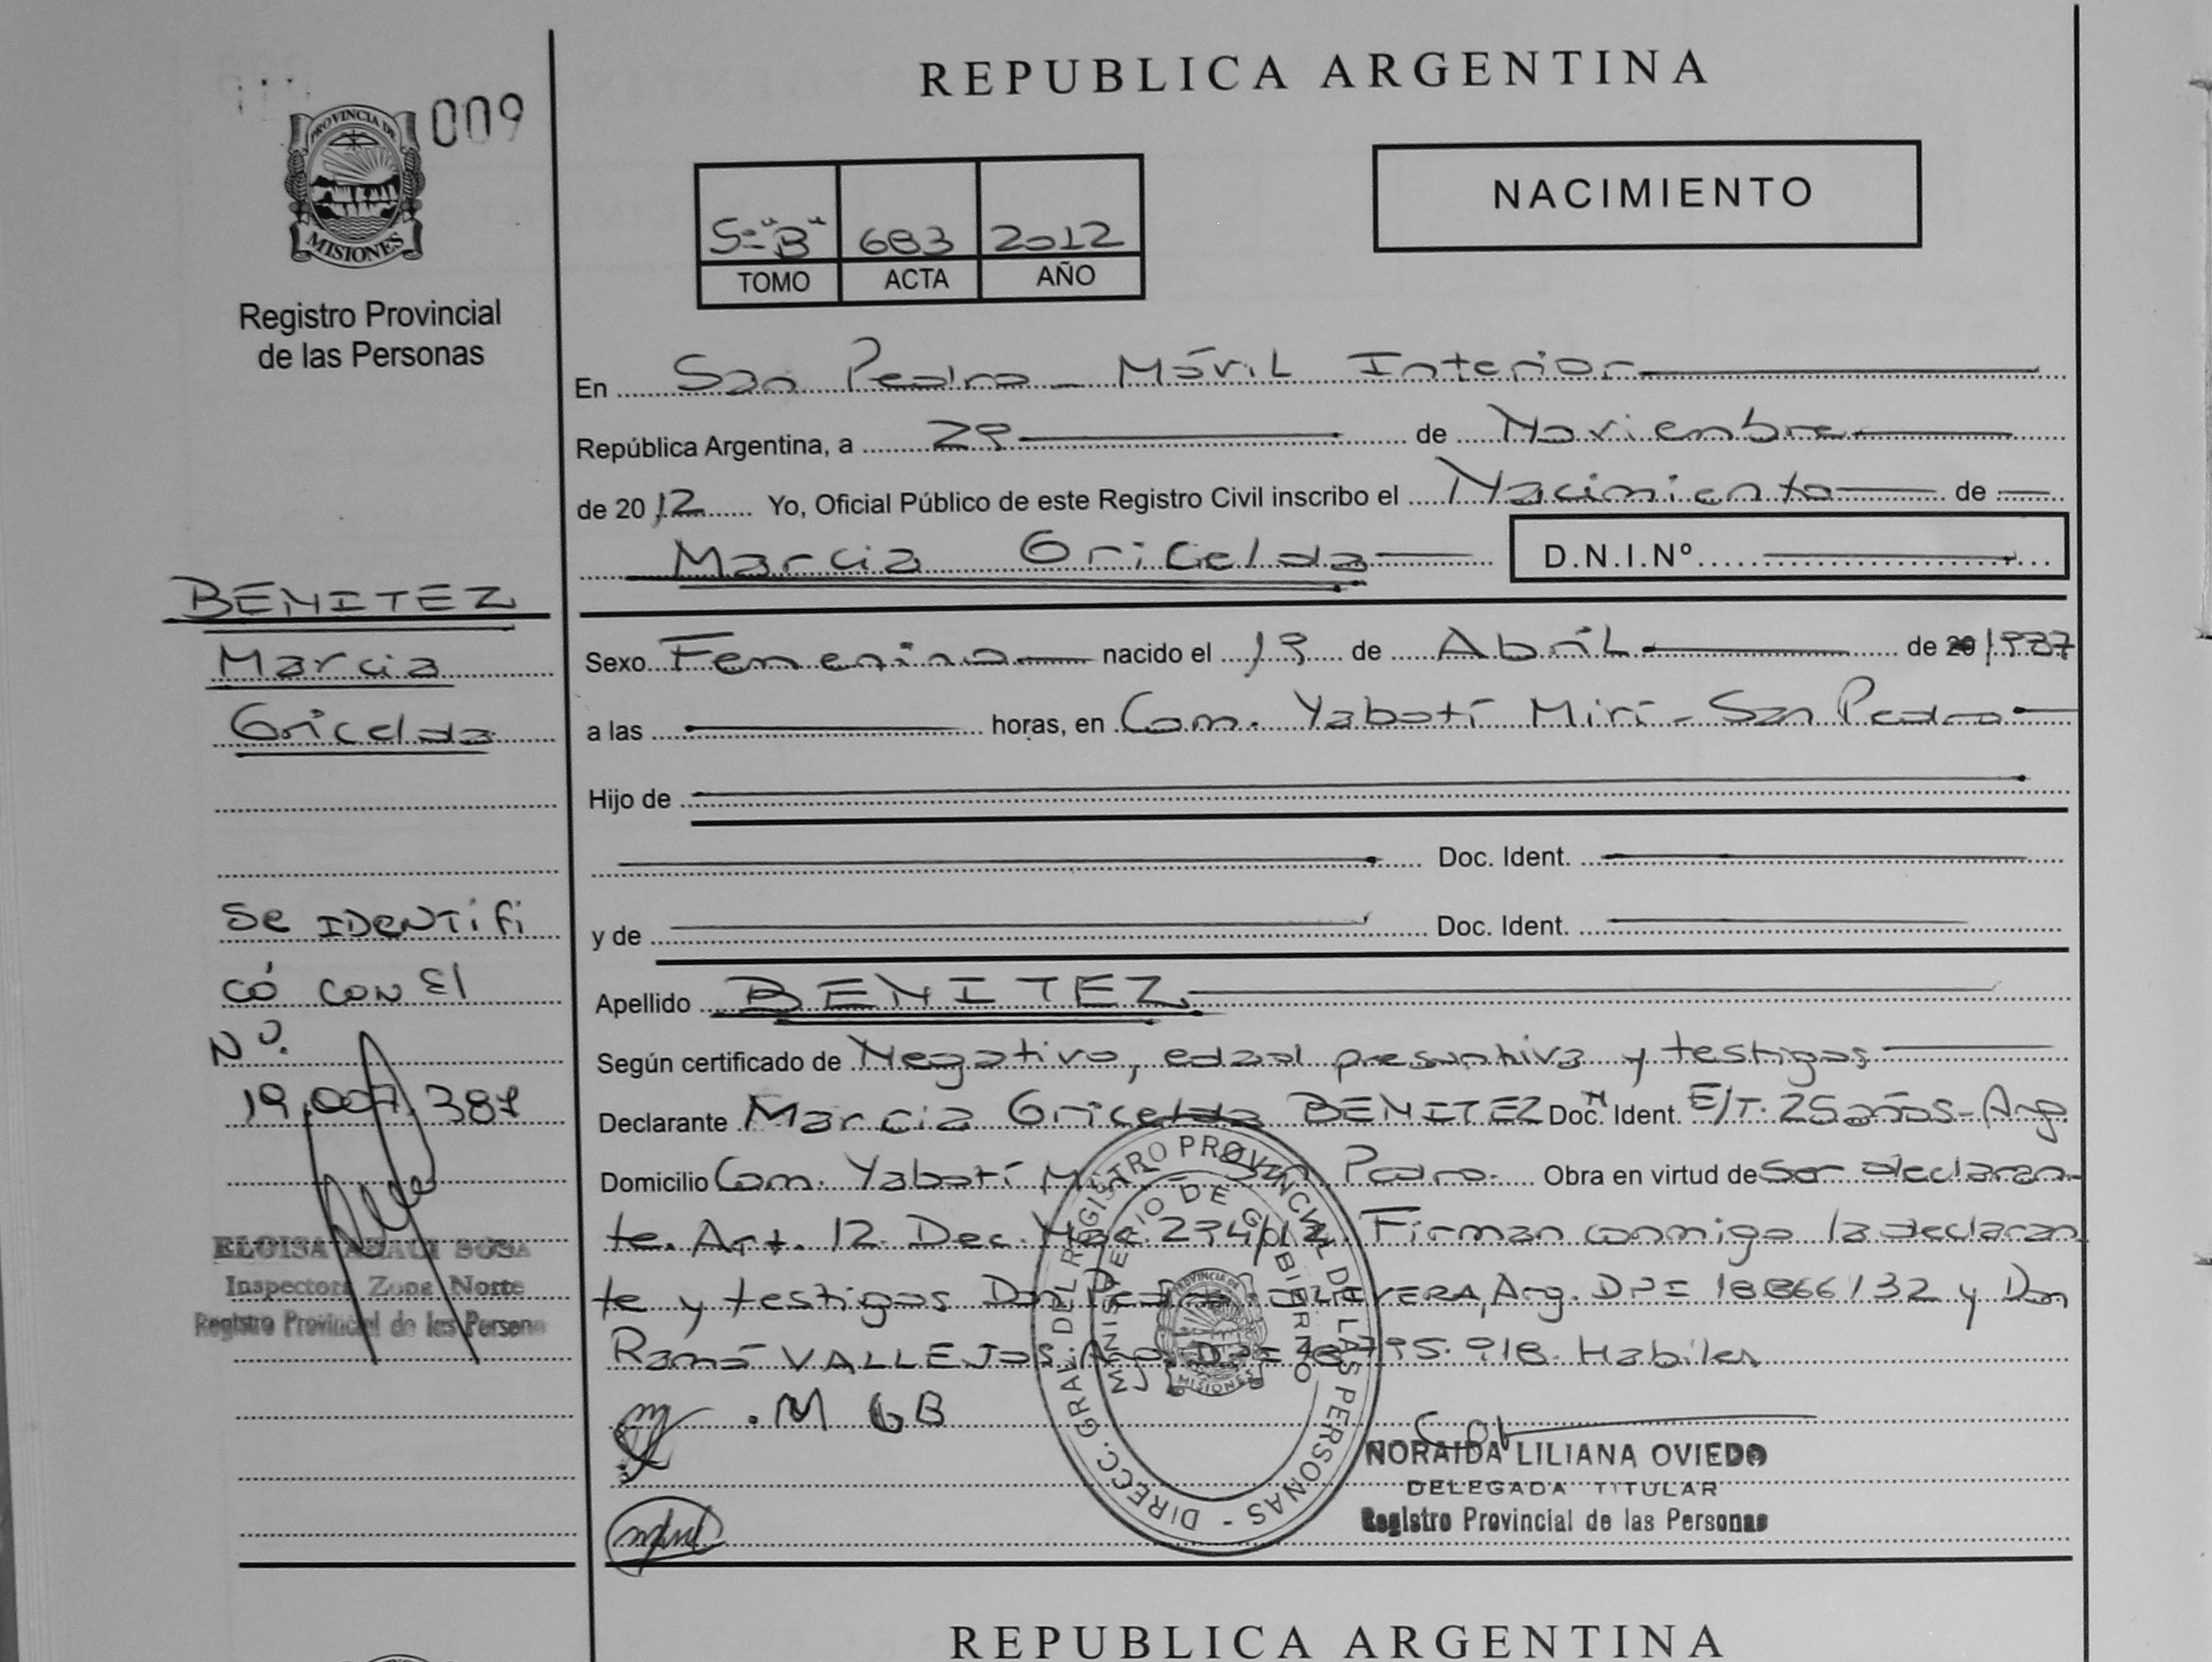 REPUBLICA ARGENTINA
009
PROVINCIA DE
MISIONES
Registro Provincial
de las Personas
NACIMIENTO
5="B" 683 2012
TOMO ACTA AÑO
En San Pedro - Móvil Interior
República Argentina, a 29 de Noviembre
de 2012 Yo, Oficial Público de este Registro Civil inscribo el Nacimiento de
Marcia Gricelda D.N.I.Nº
BENITEZ
Marcia
Gricelda
Sexo Femenino nacido el 19 de Abril de 20 1987
a las horas, en Com. Yabotí Mirí - San Pedro
Hijo de
Doc. Ident.
y de Doc. Ident.
Apellido BENITEZ
Según certificado de Negativo, edad presuntiva y testigos
Declarante Marcia Gricelda BENITEZ Doc. Ident. E/T. 25 años - Arg
Domicilio Com. Yabotí Pedro. Obra en virtud de Ser declaran-
te. Art. 12. Dec. 294/012. Firman conmigo la declaran
te y testigos Don Arg. 18866132 y Don
Ramó VALLEJOS, 795.918. Habiles
. M G B
Se IDENTifi
có CON El
Nº.
19.007.387
ELOISA SOSA
Inspectora Zona Norte
Registro Provincial de las Persona
DIRECC. GRAL. DEL REGISTRO PROVINCIAL DE LAS PERSONAS -
MINISTERIO DE GOBIERNO
PROVINCIA DE
MISIONES
NORAIDA LILIANA OVIEDO
DELEGADA TITULAR
Registro Provincial de las Personas
REPUBLICA ARGENTINA